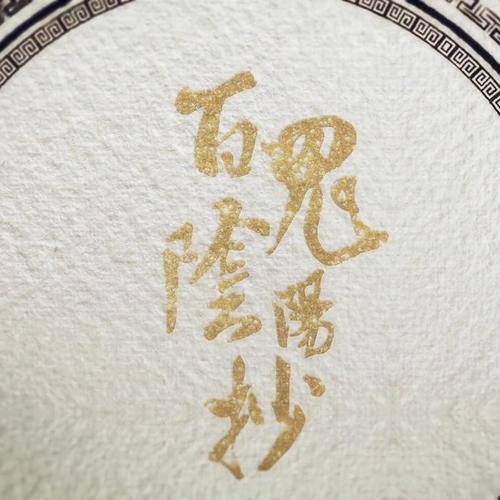 百鬼陰陽抄